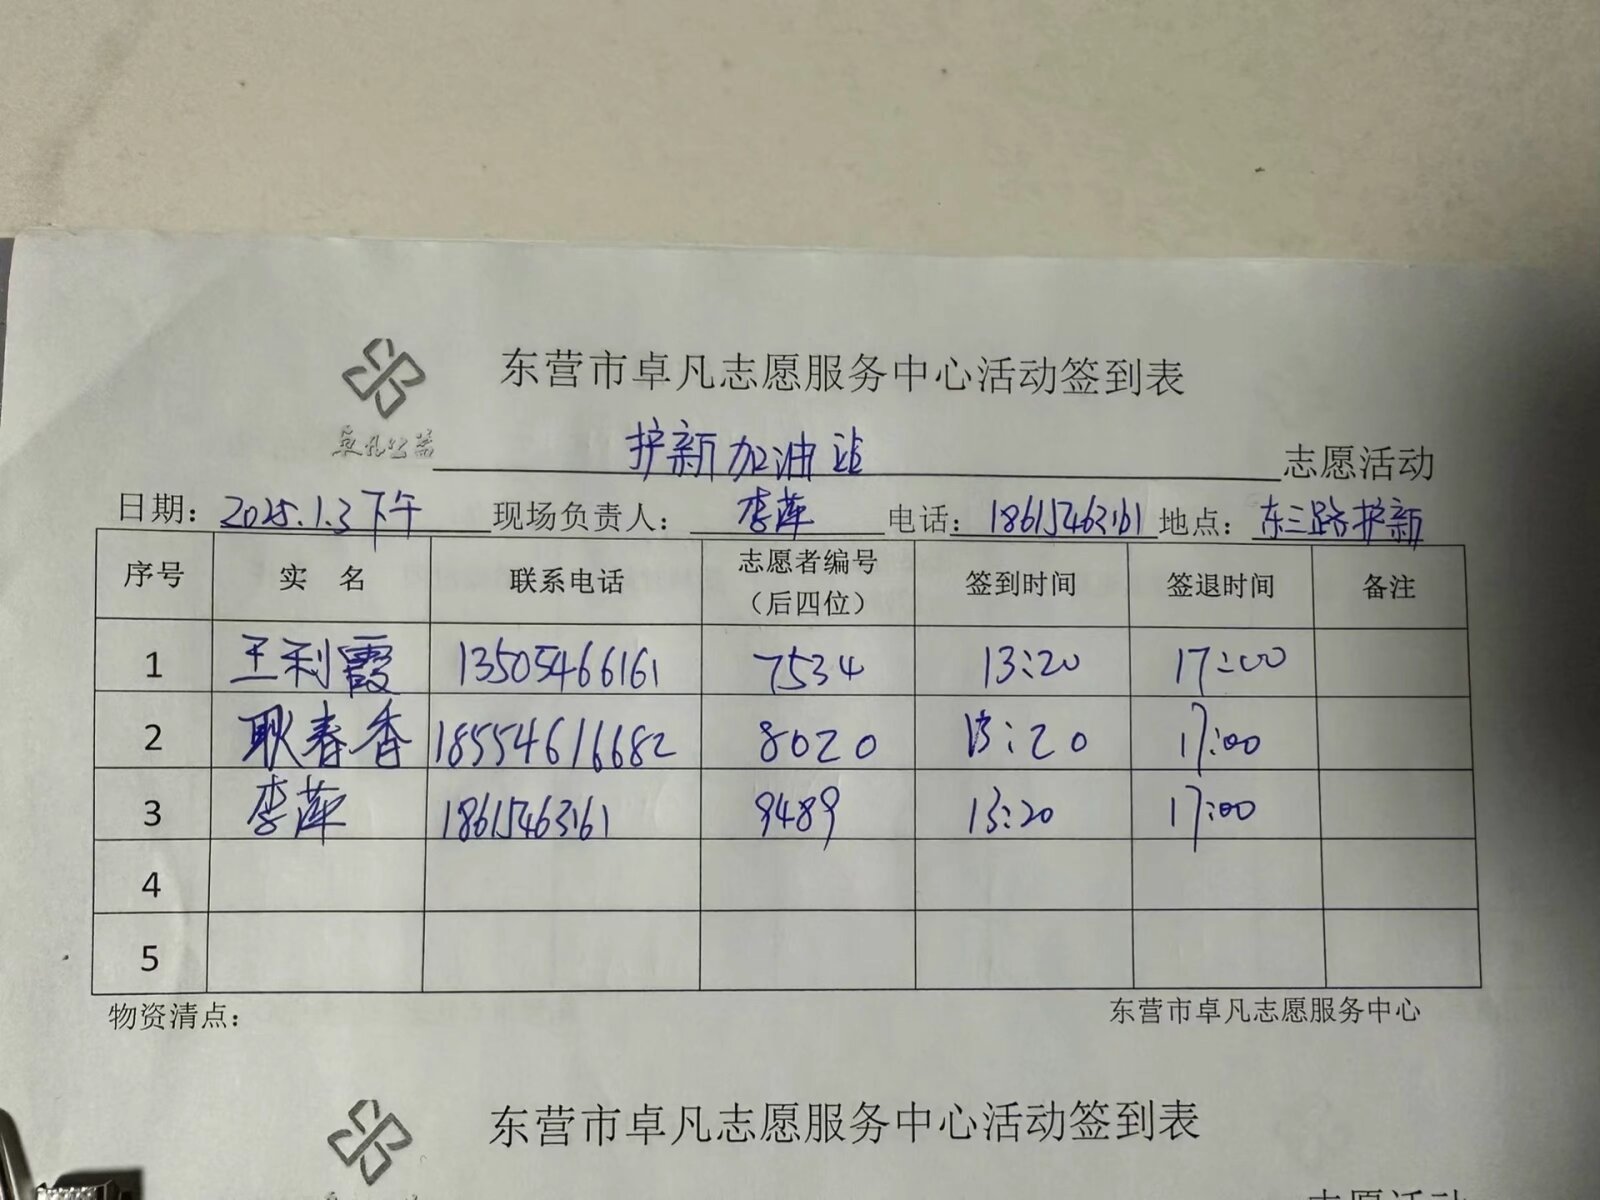 东营市卓凡志愿服务中心活动签到表
卓凡公益
护新加油站 志愿活动
日期：2025.1.3下午 现场负责人：李萍 电话：18615463161 地点：东三路护新
序号 实 名 联系电话 志愿者编号（后四位） 签到时间 签退时间 备注
1 王利霞 13505466161 7534 13:20 17:00
2 耿春香 18554616682 8020 13:20 17:00
3 李萍 18615463161 9489 13:20 17:00
4
5
物资清点： 东营市卓凡志愿服务中心
东营市卓凡志愿服务中心活动签到表
志愿活动